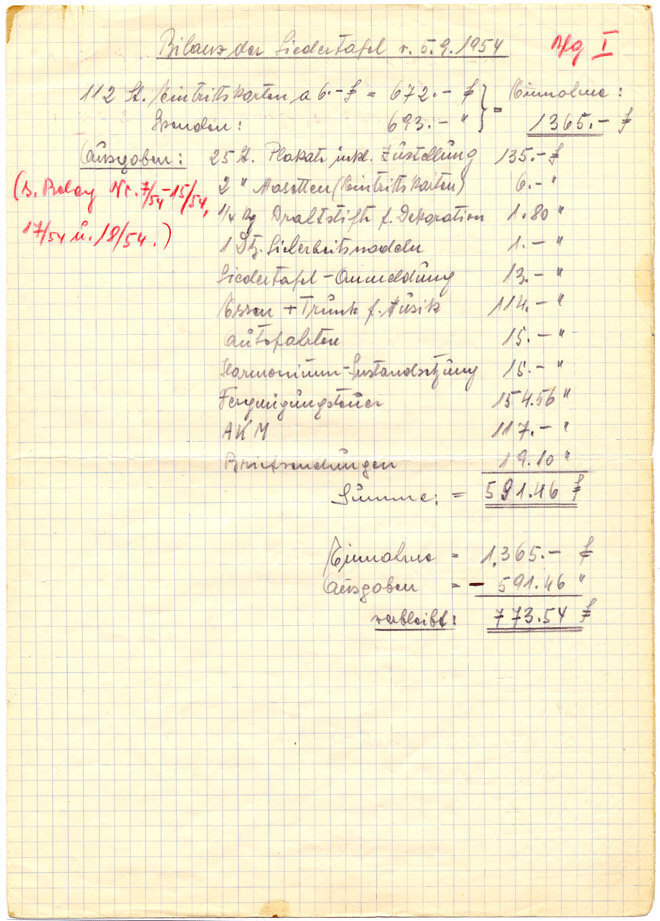 Bilanz der Liedertafel v. 5.9.1954
Blg I
112 St. Eintrittskarten a 6.- S = 672.- S } = Einnahme:
Spenden: 693.- " 1365.- S
Ausgaben: 25 St. Plakate inkl. Zustellung 135.- S
(s. Beleg Nr. 7/54 - 15/54,
17/54 u. 18/54.)
2 " Masetten (Eintrittskarten) 6.- "
1/4 kg Drahtstifte f. Dekoration 1.80 "
1 Dtz. Sicherheitsnadeln 1.- "
Liedertafel-Anmeldung 13.- "
Essen + Trunk f. Musik 114.- "
Autofahrten 15.- "
Harmonium-Instandsetzung 15.- "
154.56 "
AKM 117.- "
Briefsendungen 19.10 "
Summe: = 591.46 S
Einnahme = 1.365.- S
Ausgaben = - 591.46 "
verbleibt: 773.54 S